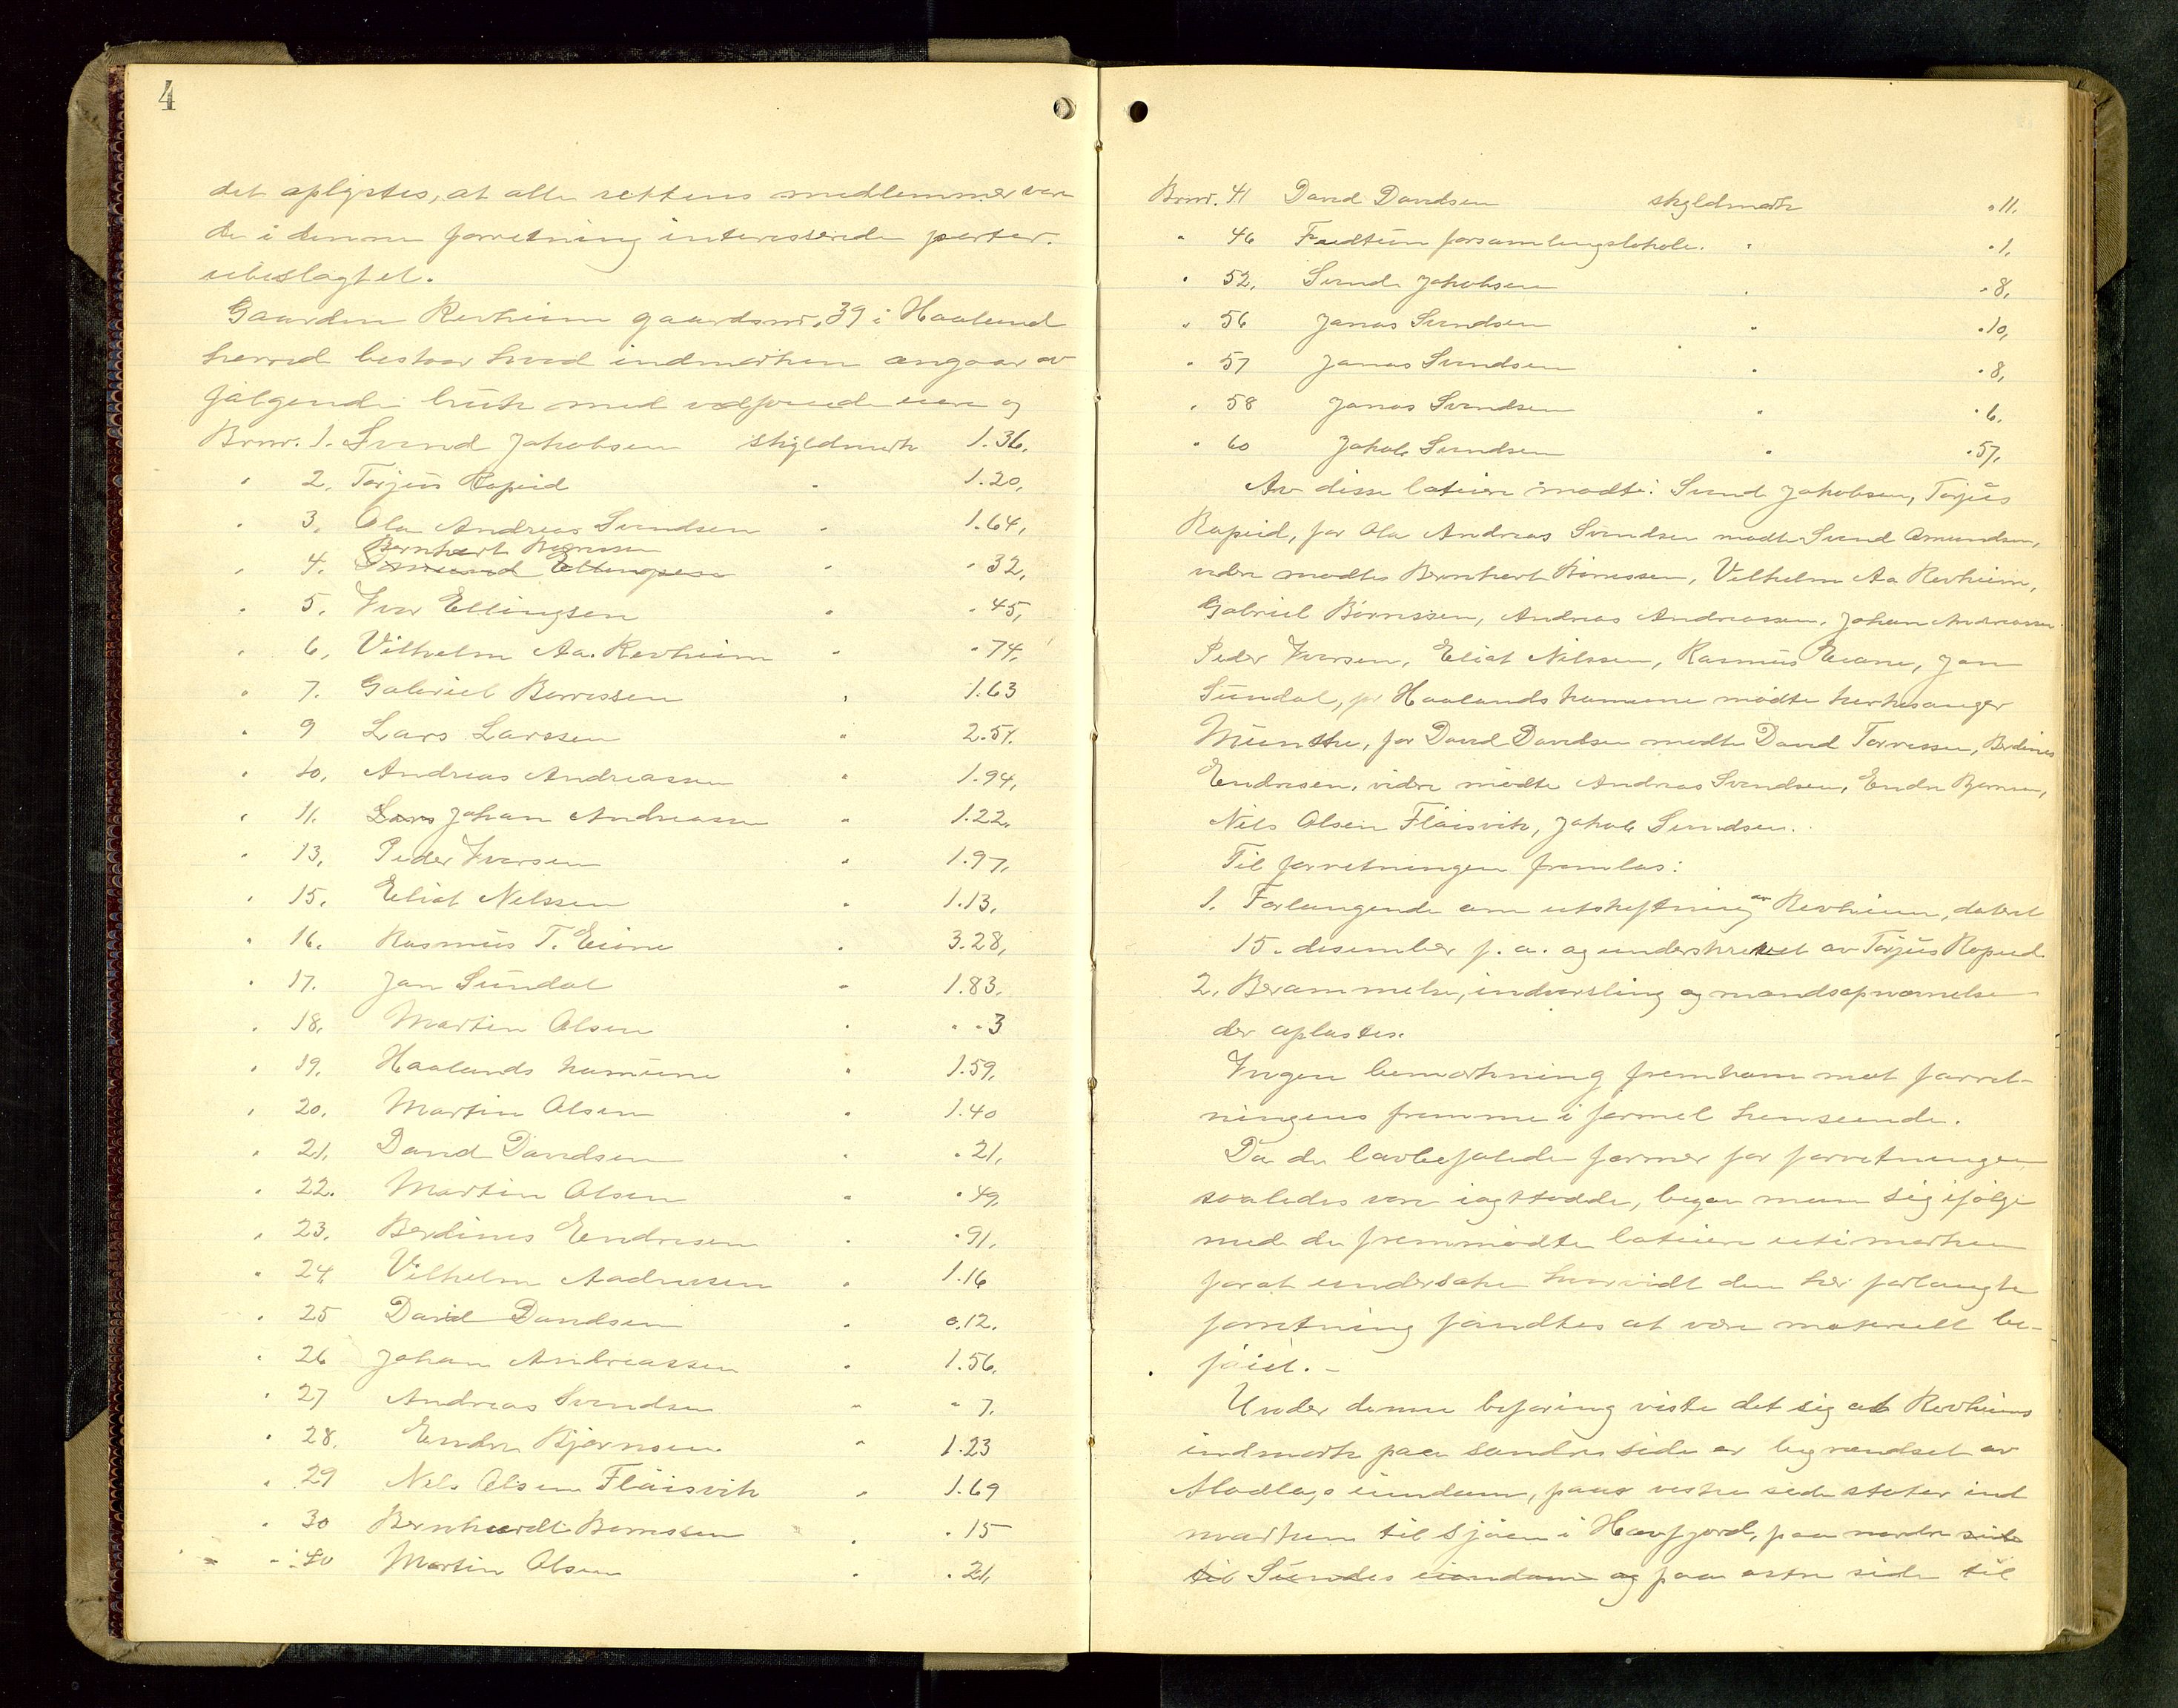 4
det oplystes, at alle rettens medlemmer var
de i denne forretning interesserede parter
ubeslagtet.
Gaarden Revheim gaardsnr. 39 i Haaland
herred bestaar hvad indmarken angaar av
følgende bruk med vedføiede eiere og
Brnr. 1. Svend Jakobsen skyldmark 1.36.
" 2. Torjus Ropeid " 1.20,
" 3. Ola Andreas Svendsen " 1.64,
Bernhart Børnessen
" 4. Edmund Ellingsen " " 32,
" 5. Ivar Ellingsen " " 45,
" 6, Vilhelm Aa. Revheim " " 74,
" 7. Gabriel Børnessen " 1.63
" 9 Lars Larssen " 2.57.
" 10, Andreas Andreassen " 1.94,
" 11. Lars Johan Andreassen " 1.22,
" 13, Peder Iversen " 1.97,
" 15. Eliat Nelssen " 1.13,
" 16. Rasmus T. Eiane " 3.28,
" 17. Jan Sundal " 1.83,
" 18, Martin Olsen " " " 3
" 19. Haalands komune " 1.59,
" 20. Martin Olsen " 1.40
" 21. David Davidsen " " 21,
" 22. Martin Olsen " " 49,
" 23. Berdines Endresen " " 91,
" 24 Vilhelm Aadnesen " 1.16
" 25 David Davidsen " 0.12.
" 26 Johan Andreassen " 1.56,
" 27 Andreas Svendsen " " 7,
" 28. Endre Bjørnsen " 1.23
" 29 Nils Olsen Fløisvik " 1.69
" 30 Bernhardt Børnessen " " 15
" 40 Martin Olsen " " 21,
Brnr. 41 David Davidsen skyldmark " 11.
" 46 Fredtun forsamlingslokale. " " 1,
" 52, Svend Jakobsen " " 8,
" 56 Jonas Svendsen " " 10,
" 57 Jonas Svendsen " " 8,
" 58 Jonas Svendsen " " 6,
" 60 Jakob Svendsen " " 57,
Av disse lateiere mødte: Svend Jakobsen, Torjus
Ropeid, for Ola Andreas Svendsen mødte Svend Omundsen,
videre mødtes Bernhert Børnessen, Vilhelm Aa Revheim,
Gabriel Børnessen, Andreas Andreassen, Johan Andreassen
Peder Iversen, Eliat Nelssen, Rasmus Eiane, Jan
Sundal, for Haalands komune mødte kirkesanger
Munthe, for David Davidsen mødte David Torressen, Berdines
Endresen, videre mødte Andreas Svendsen, Endre Bjørnsen,
Nils Olsen Fløisvik, Jakob Svendsen.
Til forretningen fremlas:
1. Forlangende om utskiftning av Revheim, datert
15. desember f. a. og underskrevet av Torjus Ropeid.
2, Berammelse, indvarsling og mandsopnævnelse
der oplæstes.
Ingen bemerkning fremkom mot forret-
ningens fremme i formel henseende.
Da de lovbefalede former for forretningen
saaledes var iagttodde, begav man sig ifølge
med de fremmødte lateiere ut i marken
forat undersøke hvorvidt den her forlangte
forretning fandtes at være materielt be-
føiet. -
Under denne befaring viste det sig at Revheims
indmark paa søndre side er begrændset av
Madlas eiendom, paa vestre side støter ind
marken til sjøen i Havfjord, paa nordre side
til Sundes eiendom og paa østre side til